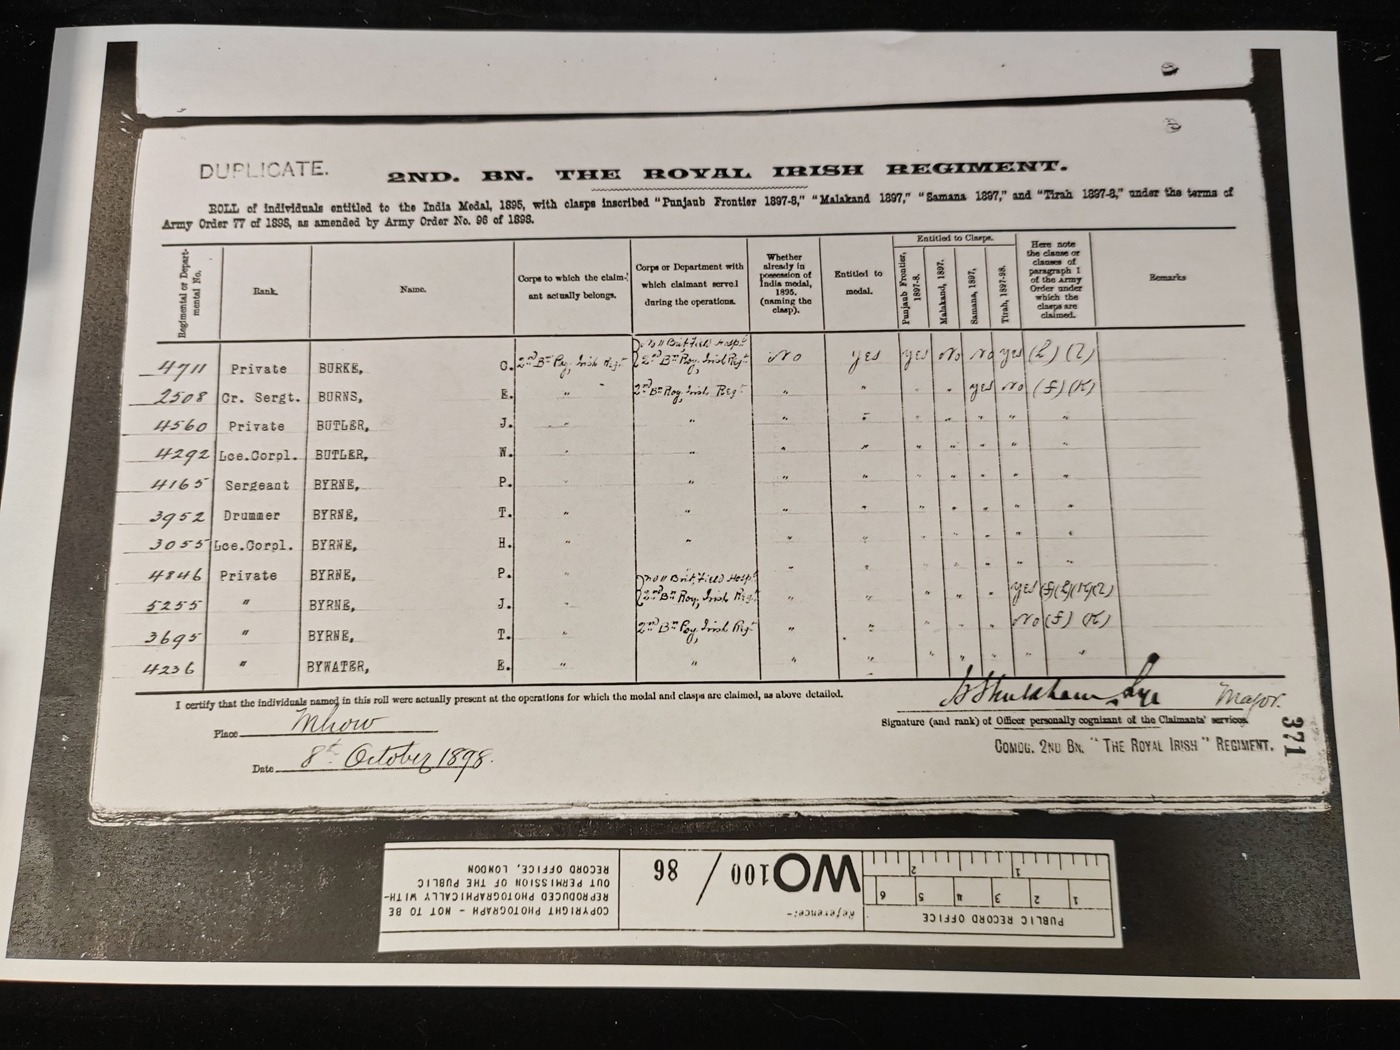 DUPLICATE.
2ND. BN. THE ROYAL IRISH REGIMENT.
ROLL of individuals entitled to the India Medal, 1895, with clasps inscribed "Punjaub Frontier 1897-8," "Malakand 1897," "Samana 1897," and "Tirah 1897-8," under the terms of
Army Order 77 of 1898, as amended by Army Order No. 96 of 1898.
Regimental or Departmental No. Rank. Name. Corps to which the claimant actually belongs. Corps or Department with which claimant served during the operations. Whether already in possession of India medal, 1895. (naming the clasp). Entitled to medal. Entitled to Clasps. Punjaub Frontier, 1897-8. Malakand, 1897. Samana, 1897, Tirah, 1897-98. Here note the clause or clauses of paragraph 1 of the Army Order under which the clasps are claimed. Remarks
No 11 Brit. Field Hospl
4711 Private BURKE, G. 2nd Bn Roy, Irish Regt 2nd Bn Roy, Irish Regt No Yes yes No No yes
2508 Cr. Sergt. BURNS, E. " 2nd Bn Roy, Irish Regt " " " " yes No (f) (K)
4560 Private BUTLER, J. " " " " " " " " "
4292 Lce.Corpl. BUTLER, W. " " " " " " " " "
4165 Sergeant BYRNE, P. " " " " " " " " "
3952 Drummer BYRNE, T. " " " " " " " " "
3055 Lce.Corpl. BYRNE, H. " " " " " " " " "
4846 Private BYRNE, P. " " " " " " " "
No 11 Brit. Field Hospl
5255 " BYRNE, J. " 2nd Bn Roy, Irish Regt " " " " " yes
3695 " BYRNE, T. " 2nd Bn Roy, Irish Regt " " " " " No (f) (K)
4236 " BYWATER, E. " " " " " " " " "
I certify that the individuals named in this roll were actually present at the operations for which the medal and clasps are claimed, as above detailed.
Major.
Place Mhow
Signature (and rank) of Officer personally cognizant of the Claimants' services.
Date 8th October 1898.
COMDG. 2ND BN. "THE ROYAL IRISH" REGIMENT.
371
PUBLIC RECORD OFFICE
1 2 3 4 5 6
1 2
Reference:-
WO 100 / 86
COPYRIGHT PHOTOGRAPH - NOT TO BE
REPRODUCED PHOTOGRAPHICALLY WITH-
OUT PERMISSION OF THE PUBLIC
RECORD OFFICE, LONDON